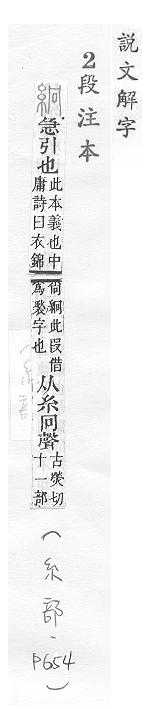 說文解字
2段注本
絅
急引也
此本義也中
庸詩曰衣錦
尙絅此叚借
爲褧字也
从糸冋聲
古熒切
十一部
(糸部.P654)